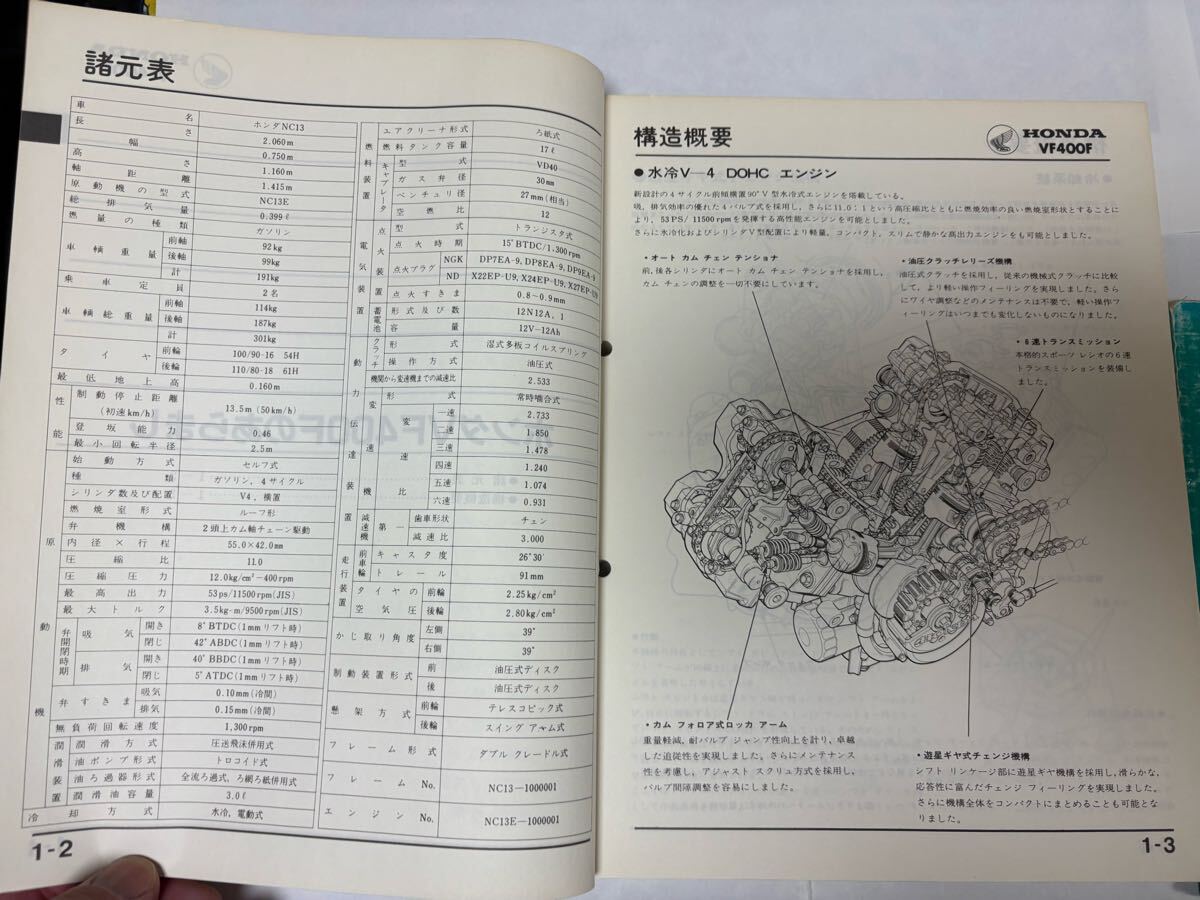 諸元表
車名 ホンダNC13
長さ 2.060m
幅 0.750m
高さ 1.160m
軸距離 1.415m
原動機の型式 NC13E
総排気量 0.399ℓ
燃量の種類 ガソリン
車輌重量 前軸 92kg
後軸 99kg
計 191kg
乗車定員 2名
車輌総重量 前軸 114kg
後軸 187kg
計 301kg
タイヤ 前輪 100/90-16 54H
後輪 110/80-18 61H
最低地上高 0.160m
性能 制動停止距離(初速km/h) 13.5m(50km/h)
登坂能力 0.46
最小回転半径 2.5m
原動機
始動方式 セルフ式
種類 ガソリン,4サイクル
シリンダ数及び配置 V4,横置
燃焼室形式 ルーフ形
弁機構 2頭上カム軸チェーン駆動
内径×行程 55.0×42.0mm
圧縮比 11.0
圧縮圧力 12.0kg/cm²−400rpm
最高出力 53ps/11500rpm(JIS)
最大トルク 3.5kg-m/9500rpm(JIS)
弁開閉時期 吸気 開き 8°BTDC(1mmリフト時)
閉じ 42°ABDC(1mmリフト時)
排気 開き 40°BBDC(1mmリフト時)
閉じ 5°ATDC(1mmリフト時)
弁すきま 吸気 0.10mm(冷間)
排気 0.15mm(冷間)
無負荷回転速度 1,300rpm
潤滑装置 潤滑方式 圧送飛沫併用式
油ポンプ形式 トロコイド式
油ろ過器形式 全流ろ過式,ろ網ろ紙併用式
潤滑油容量 3.0ℓ
冷却方式 水冷,電動式
燃料装置 エアクリーナ形式 ろ紙式
燃料タンク容量 17ℓ
キャブレータ 型式 VD40
ガス弁径 30mm
ベンチュリ径 27mm(相当)
空燃比 12
電気装置 点火装置 型式 トランジスタ式
点火時期 15°BTDC/1,300rpm
点火プラグ NGK DP7EA-9, DP8EA-9, DP9EA-9
ND X22EP-U9, X24EP-U9, X27EP-U9
点火すきま 0.8〜0.9mm
蓄電池 形式及び数 12N12A,1
容量 12V−12Ah
動力伝達装置 クラッチ 形式 湿式多板コイルスプリング
操作方式 油圧式
機関から変速機までの減速比 2.533
変速機 形式 常時噛合式
変速比 一速 2.733
二速 1.850
三速 1.478
四速 1.240
五速 1.074
六速 0.931
減速機 第一 歯車形状 チェン
減速比 3.000
走行装置 前車輪 キャスタ度 26°30′
トレール 91mm
タイヤの空気圧 前輪 2.25kg/cm²
後輪 2.80kg/cm²
かじ取り角度 左側 39°
右側 39°
制動装置形式 前 油圧式ディスク
後 油圧式ディスク
懸架方式 前輪 テレスコピック式
後輪 スイングアーム式
フレーム形式 ダブル クレードル式
フレームNo. NC13−1000001
エンジンNo. NC13E−1000001
1-2
構造概要
HONDA
VF400F
●水冷V−4 DOHC エンジン
新設計の4サイクル前傾横置90°V型水冷式エンジンを搭載している。
吸,排気効率の優れた4バルブ式を採用し,さらに11.0:1という高圧縮比とともに燃焼効率の良い燃焼室形状とすることに
より,53PS/11500rpmを発揮する高性能エンジンを可能としました。
さらに水冷化およびシリンダV型配置により軽量,コンパクト,スリムで静かな高出力エンジンをも可能としました。
・オート カム チェン テンショナ
前,後各シリンダにオート カム チェン テンショナを採用し,
カム チェンの調整を一切不要にしています。
・油圧クラッチレリーズ機構
油圧式クラッチを採用し,従来の機械式クラッチに比較
して,より軽い操作フィーリングを実現しました。さら
にワイヤ調整などのメンテナンスは不要で,軽い操作フ
ィーリングはいつまでも変化しないものになりました。
・6速トランスミッション
本格的スポーツ レシオの6速
トランスミッションを装備し
ました。
・カム フォロア式ロッカ アーム
重量軽減,耐バルブ ジャンプ性向上を計り,卓越
した追従性を実現しました。さらにメンテナンス
性を考慮し,アジャスト スクリュ方式を採用し,
バルブ間隙調整を容易にしました。
・遊星ギヤ式チェンジ機構
シフト リンケージ部に遊星ギヤ機構を採用し,滑らかな,
応答性に富んだチェンジ フィーリングを実現しました。
さらに機構全体をコンパクトにまとめることも可能とな
りました。
1-3